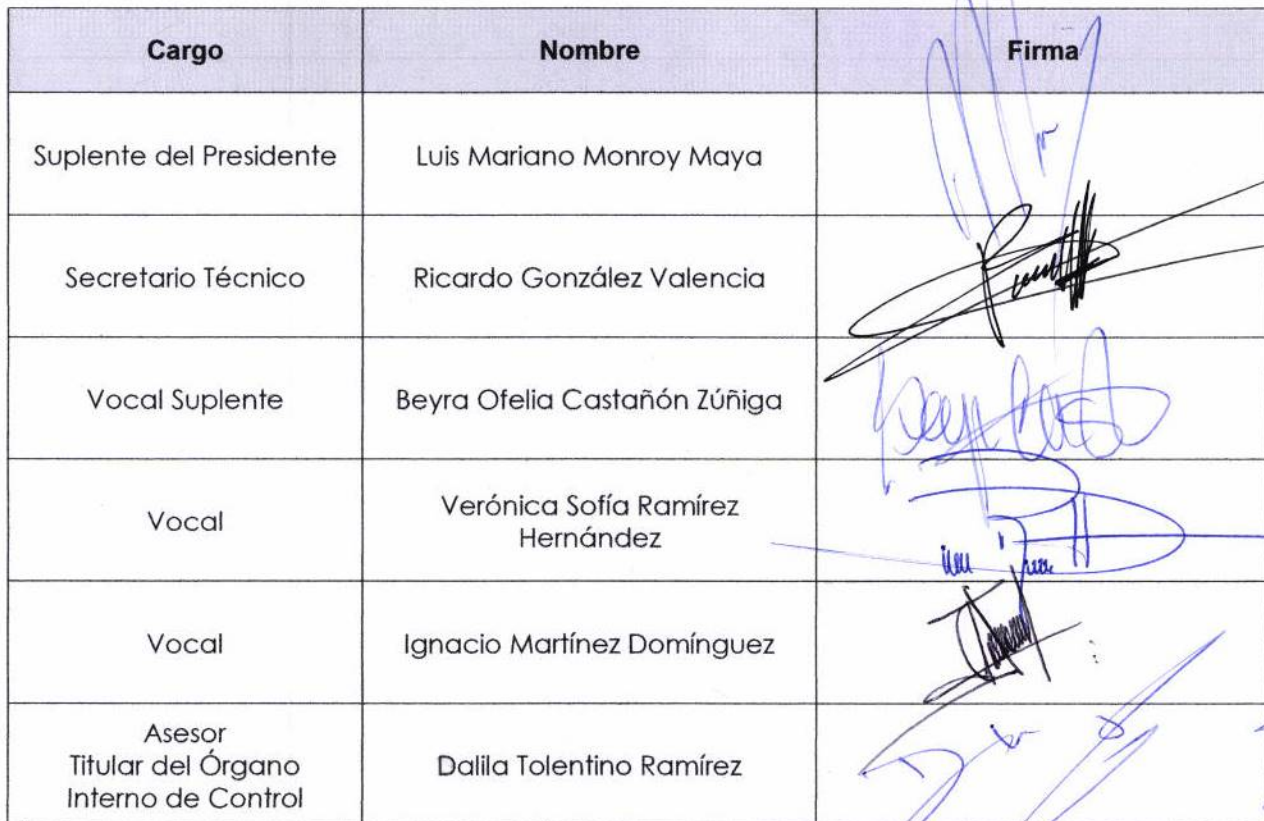 Cargo Nombre Firma
Suplente del Presidente Luis Mariano Monroy Maya
Secretario Técnico Ricardo González Valencia
Vocal Suplente Beyra Ofelia Castañón Zúñiga
Vocal Verónica Sofía Ramírez
Hernández
Vocal Ignacio Martínez Domínguez
Asesor
Titular del Órgano
Interno de Control Dalila Tolentino Ramírez